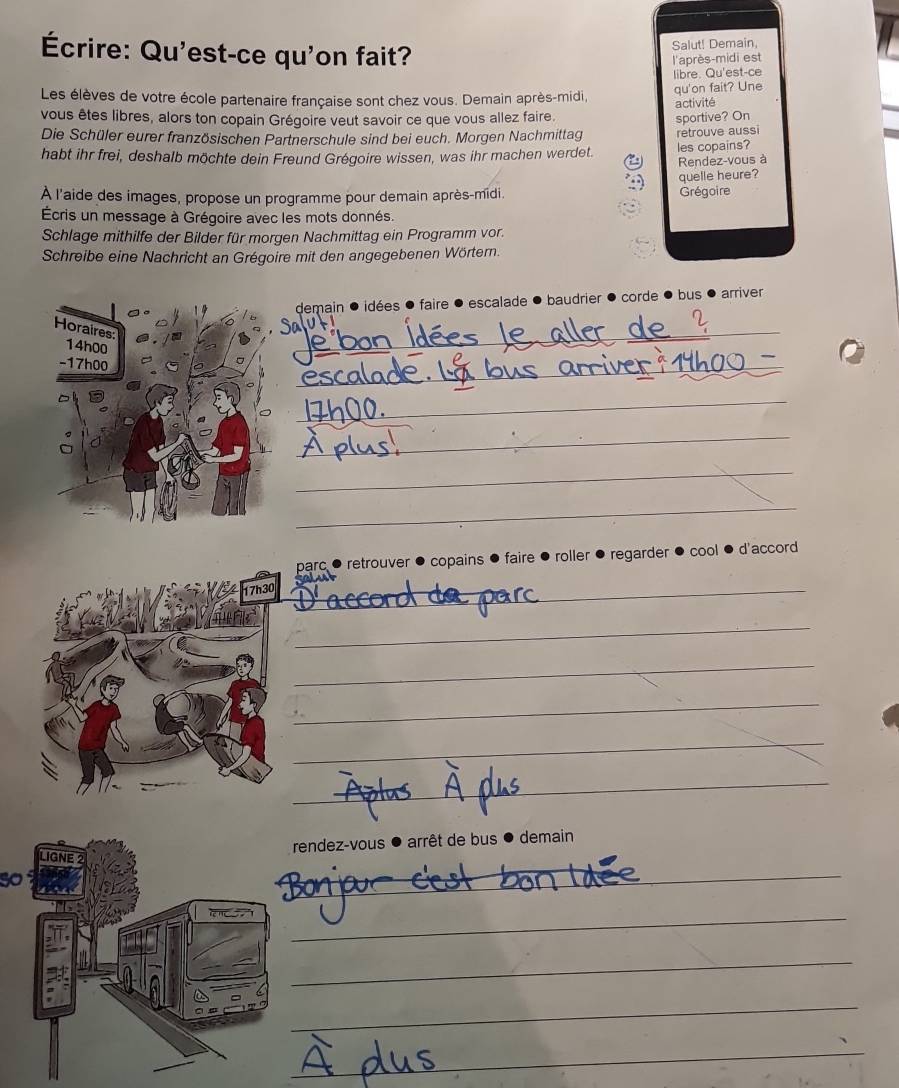 Écrire: Qu'est-ce qu'on fait?
Les élèves de votre école partenaire française sont chez vous. Demain après-midi,
vous êtes libres, alors ton copain Grégoire veut savoir ce que vous allez faire.
Die Schüler eurer französischen Partnerschule sind bei euch. Morgen Nachmittag
habt ihr frei, deshalb möchte dein Freund Grégoire wissen, was ihr machen werdet.
À l'aide des images, propose un programme pour demain après-midi.
Écris un message à Grégoire avec les mots donnés.
Schlage mithilfe der Bilder für morgen Nachmittag ein Programm vor.
Schreibe eine Nachricht an Grégoire mit den angegebenen Wörtern.
Salut! Demain,
l'après-midi est
libre. Qu'est-ce
qu'on fait? Une
activité
sportive? On
retrouve aussi
les copains?
Rendez-vous à
quelle heure?
Grégoire
Horaires:
14h00
-17h00
demain ● idées ● faire ● escalade ● baudrier ● corde ● bus ● arriver
Salut!
Je bon idées le aller de ?
escalade. La e bus arriver à 14h00 -
17h00.
À plus!
17h30
parc ● retrouver ● copains ● faire ● roller ● regarder ● cool ● d'accord
Salut
D'accord de parc
À plus À plus
LIGNE 2
rendez-vous ● arrêt de bus ● demain
Bonjour c'est bon Idée
À plus